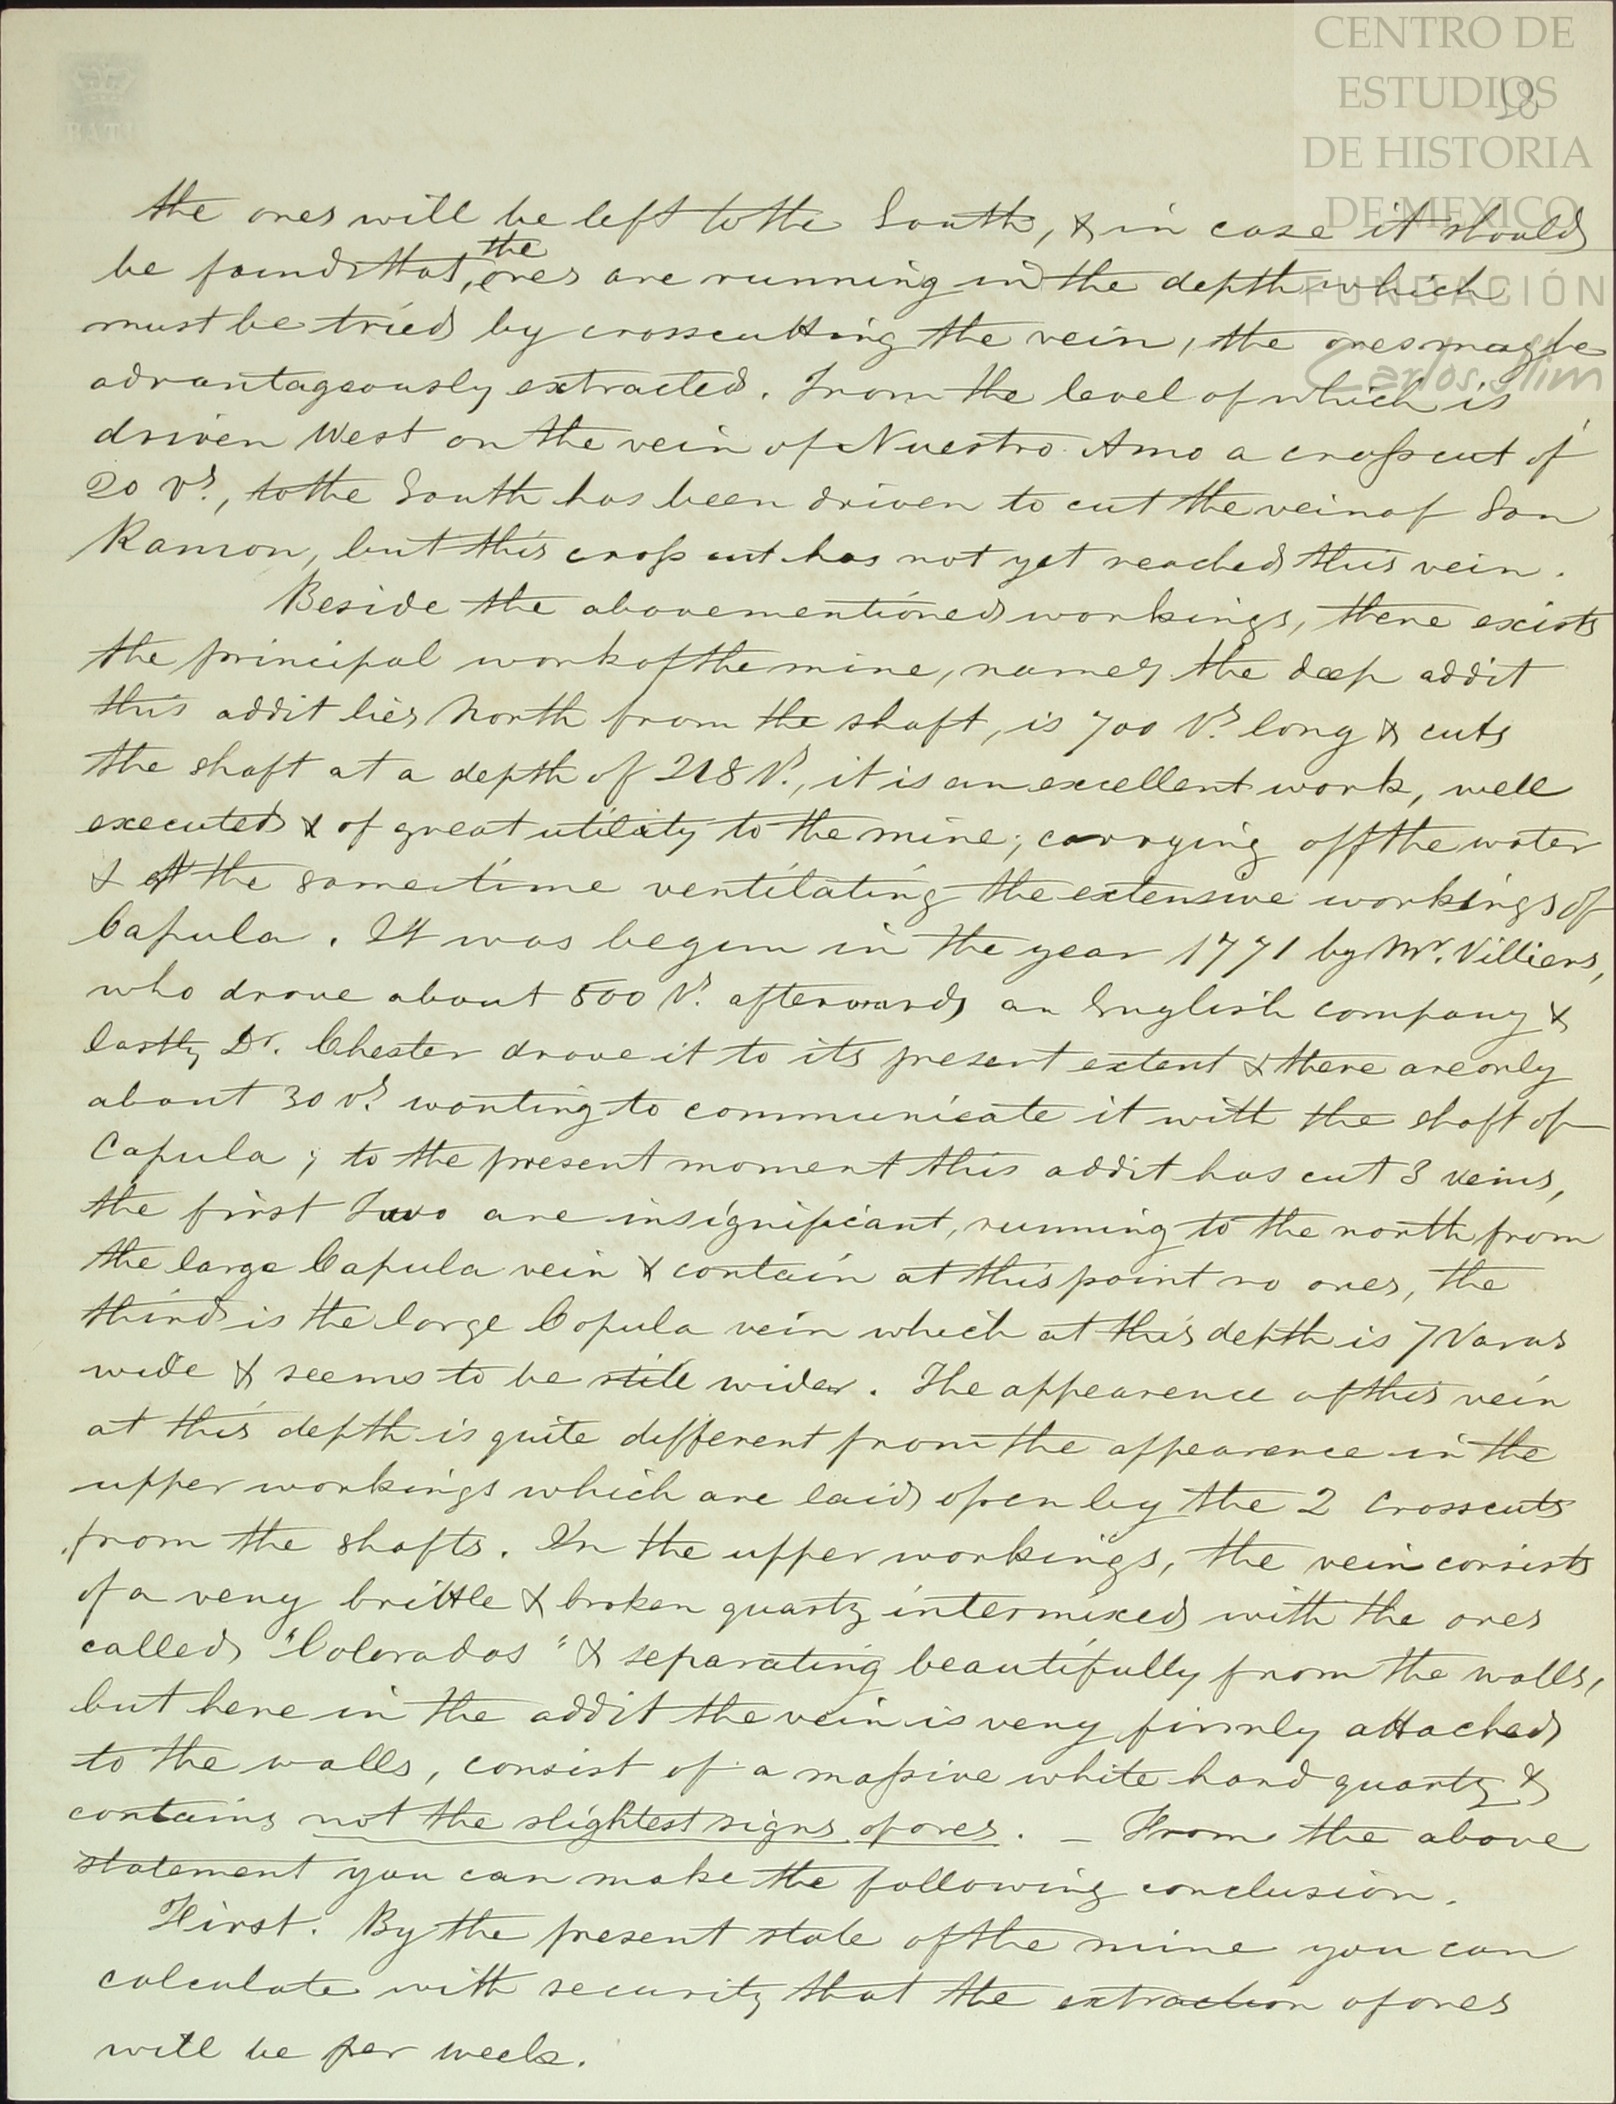 CENTRO DE
ESTUDIOS
DE HISTORIA
DE MEXICO
FUNDACIÓN
Carlos Slim
18
the ores will be left to the South, & in case it should
be found that, the ores are running in the depth which
must be tried by crosscutting the vein, the ores may be
advantageously extracted. From the level of which is
driven West on the vein of Nuestro Amo a cross cut of
20 Vs., to the South has been driven to cut the vein of San
Ramon, but this cross cut has not yet reached this vein.
Beside the abovementioned workings, there exists
the principal work of the mine, namely the deep addit
this addit lies North from the shaft, is 700 Vs. long & cuts
the shaft at a depth of 218 Vs., it is an excellent work, well
executed & of great utility to the mine; carrying off the water
& at the same time ventilating the extensive workings of
Capula. It was begun in the year 1771 by Mr. Villiers,
who drove about 500 Vs. afterwards an English company &
lastly Dr. Chester drove it to its present extent & there are only
about 30 vs. wanting to communicate it with the shaft of
Capula; to the present moment this addit has cut 3 veins,
the first Two are insignificant, running to the north from
the large Capula vein & contain at this point no ores, the
third is the large Capula vein which at this depth is 7 Varas
wide & seems to be still wider. The appearence of this vein
at this depth is quite different from the appearence in the
upper workings which are laid open by the 2 Crosscuts
from the shafts. In the upper workings, the vein consists
of a very brittle & broken quartz intermixed with the ores
called "Colorados" & separating beautifully from the walls,
but here in the addit the vein is very firmly attached
to the walls, consist of a massive white hard quartz &
contains not the slightest signs of ores. _ From the above
statement you can make the following conclusion.
First. By the present state of the mine you can
calculate with security that the extraction of ores
will be per week.